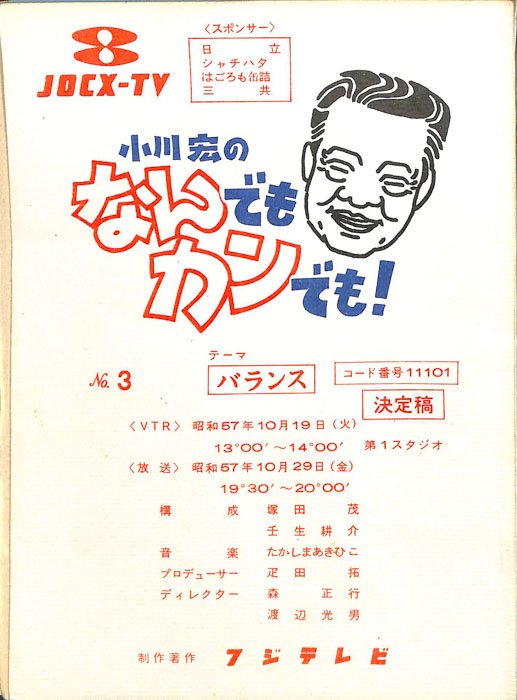 〈スポンサー〉
日立
シャチハタ
はごろも缶詰
三共
JOCX-TV
小川宏の
なんでも
カンでも!
テーマ
No.3
バランス
コード番号11101
決定稿
〈VTR〉昭和57年10月19日(火)
13°00′～14°00′ 第1スタジオ
〈放送〉昭和57年10月29日(金)
19°30′～20°00′
構成 塚田茂
壬生耕介
音楽 たかしまあきひこ
プロデューサー 疋田拓
ディレクター 森正行
渡辺光男
制作著作 フジテレビ